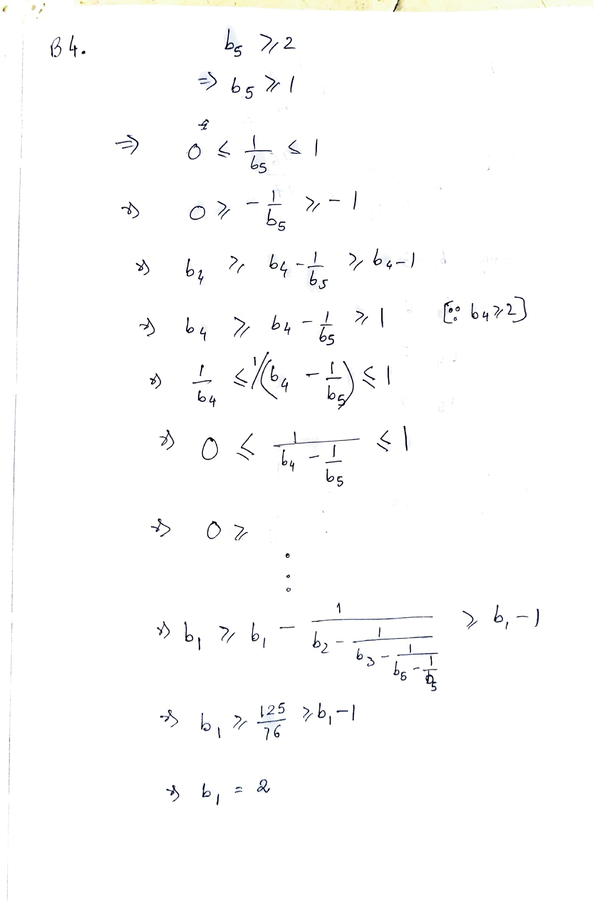 B4. b₅ ⩾ 2
⇒ b₅ ⩾ 1
⇒ 0 ⩽ 1/b₅ ⩽ 1
⇒ 0 ⩾ -1/b₅ ⩾ -1
⇒ b₄ ⩾ b₄ - 1/b₅ ⩾ b₄-1
⇒ b₄ ⩾ b₄ - 1/b₅ ⩾ 1 [∵ b₄⩾2]
⇒ 1/b₄ ⩽ 1/(b₄ - 1/b₅) ⩽ 1
⇒ 0 ⩽ 1/(b₄ - 1/b₅) ⩽ 1
⇒ 0 ⩾
⋮
⇒ b₁ ⩾ b₁ - 1/(b₂ - 1/(b₃ - 1/(b₅ - 1/b₅))) ⩾ b₁-1
⇒ b₁ ⩾ 125/76 ⩾ b₁-1
⇒ b₁ = 2